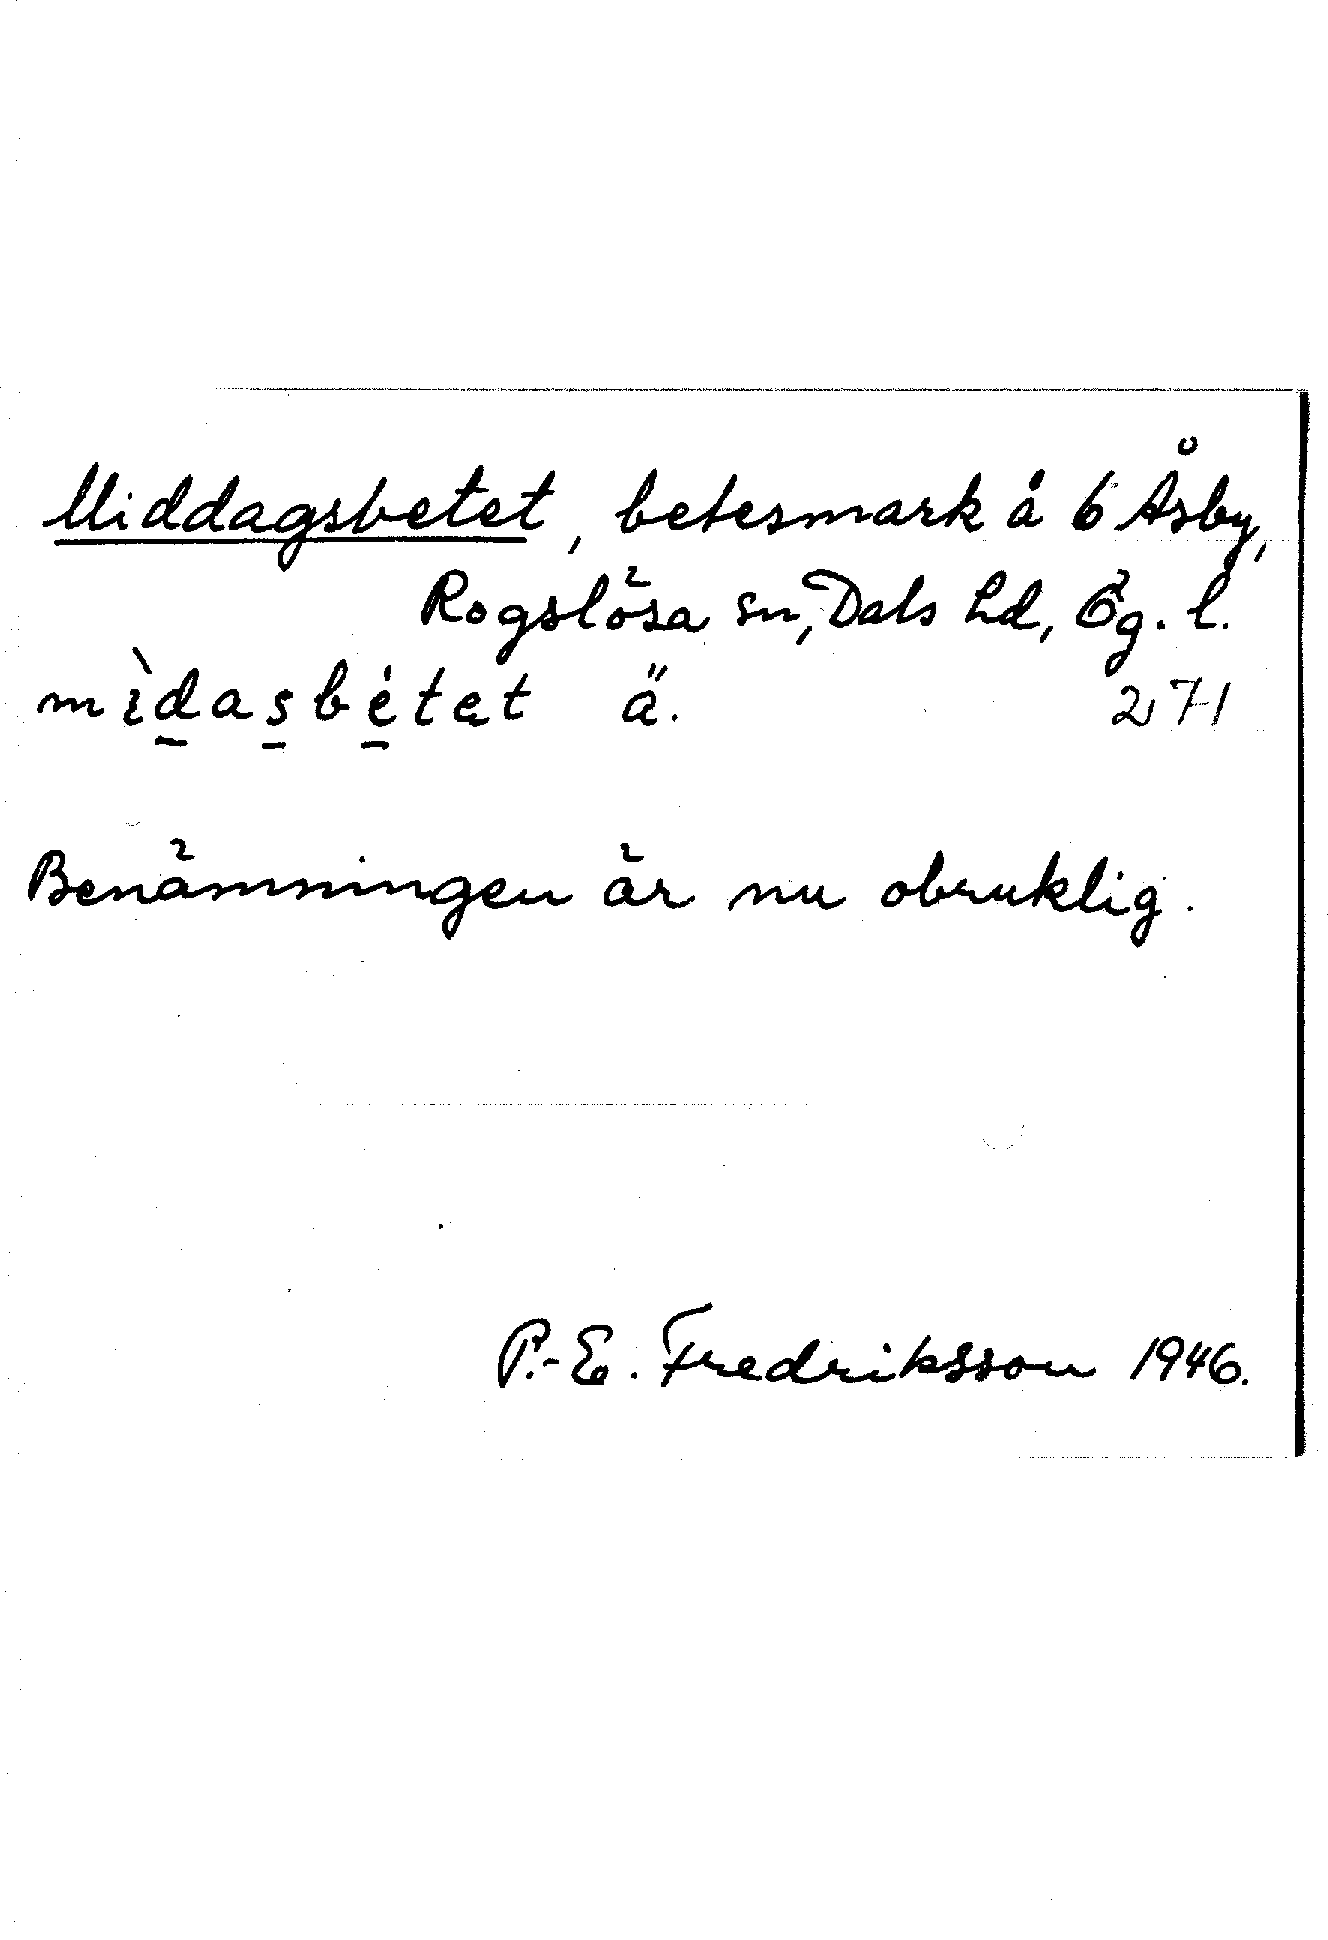 Middagsbetet, betesmark å 6 Åsby,
Rogslösa sn, Dals hd, Ög. l.
mìdasbétet ä. 271
Benämningen är nu obruklig.
P.-E. Fredriksson 1946.